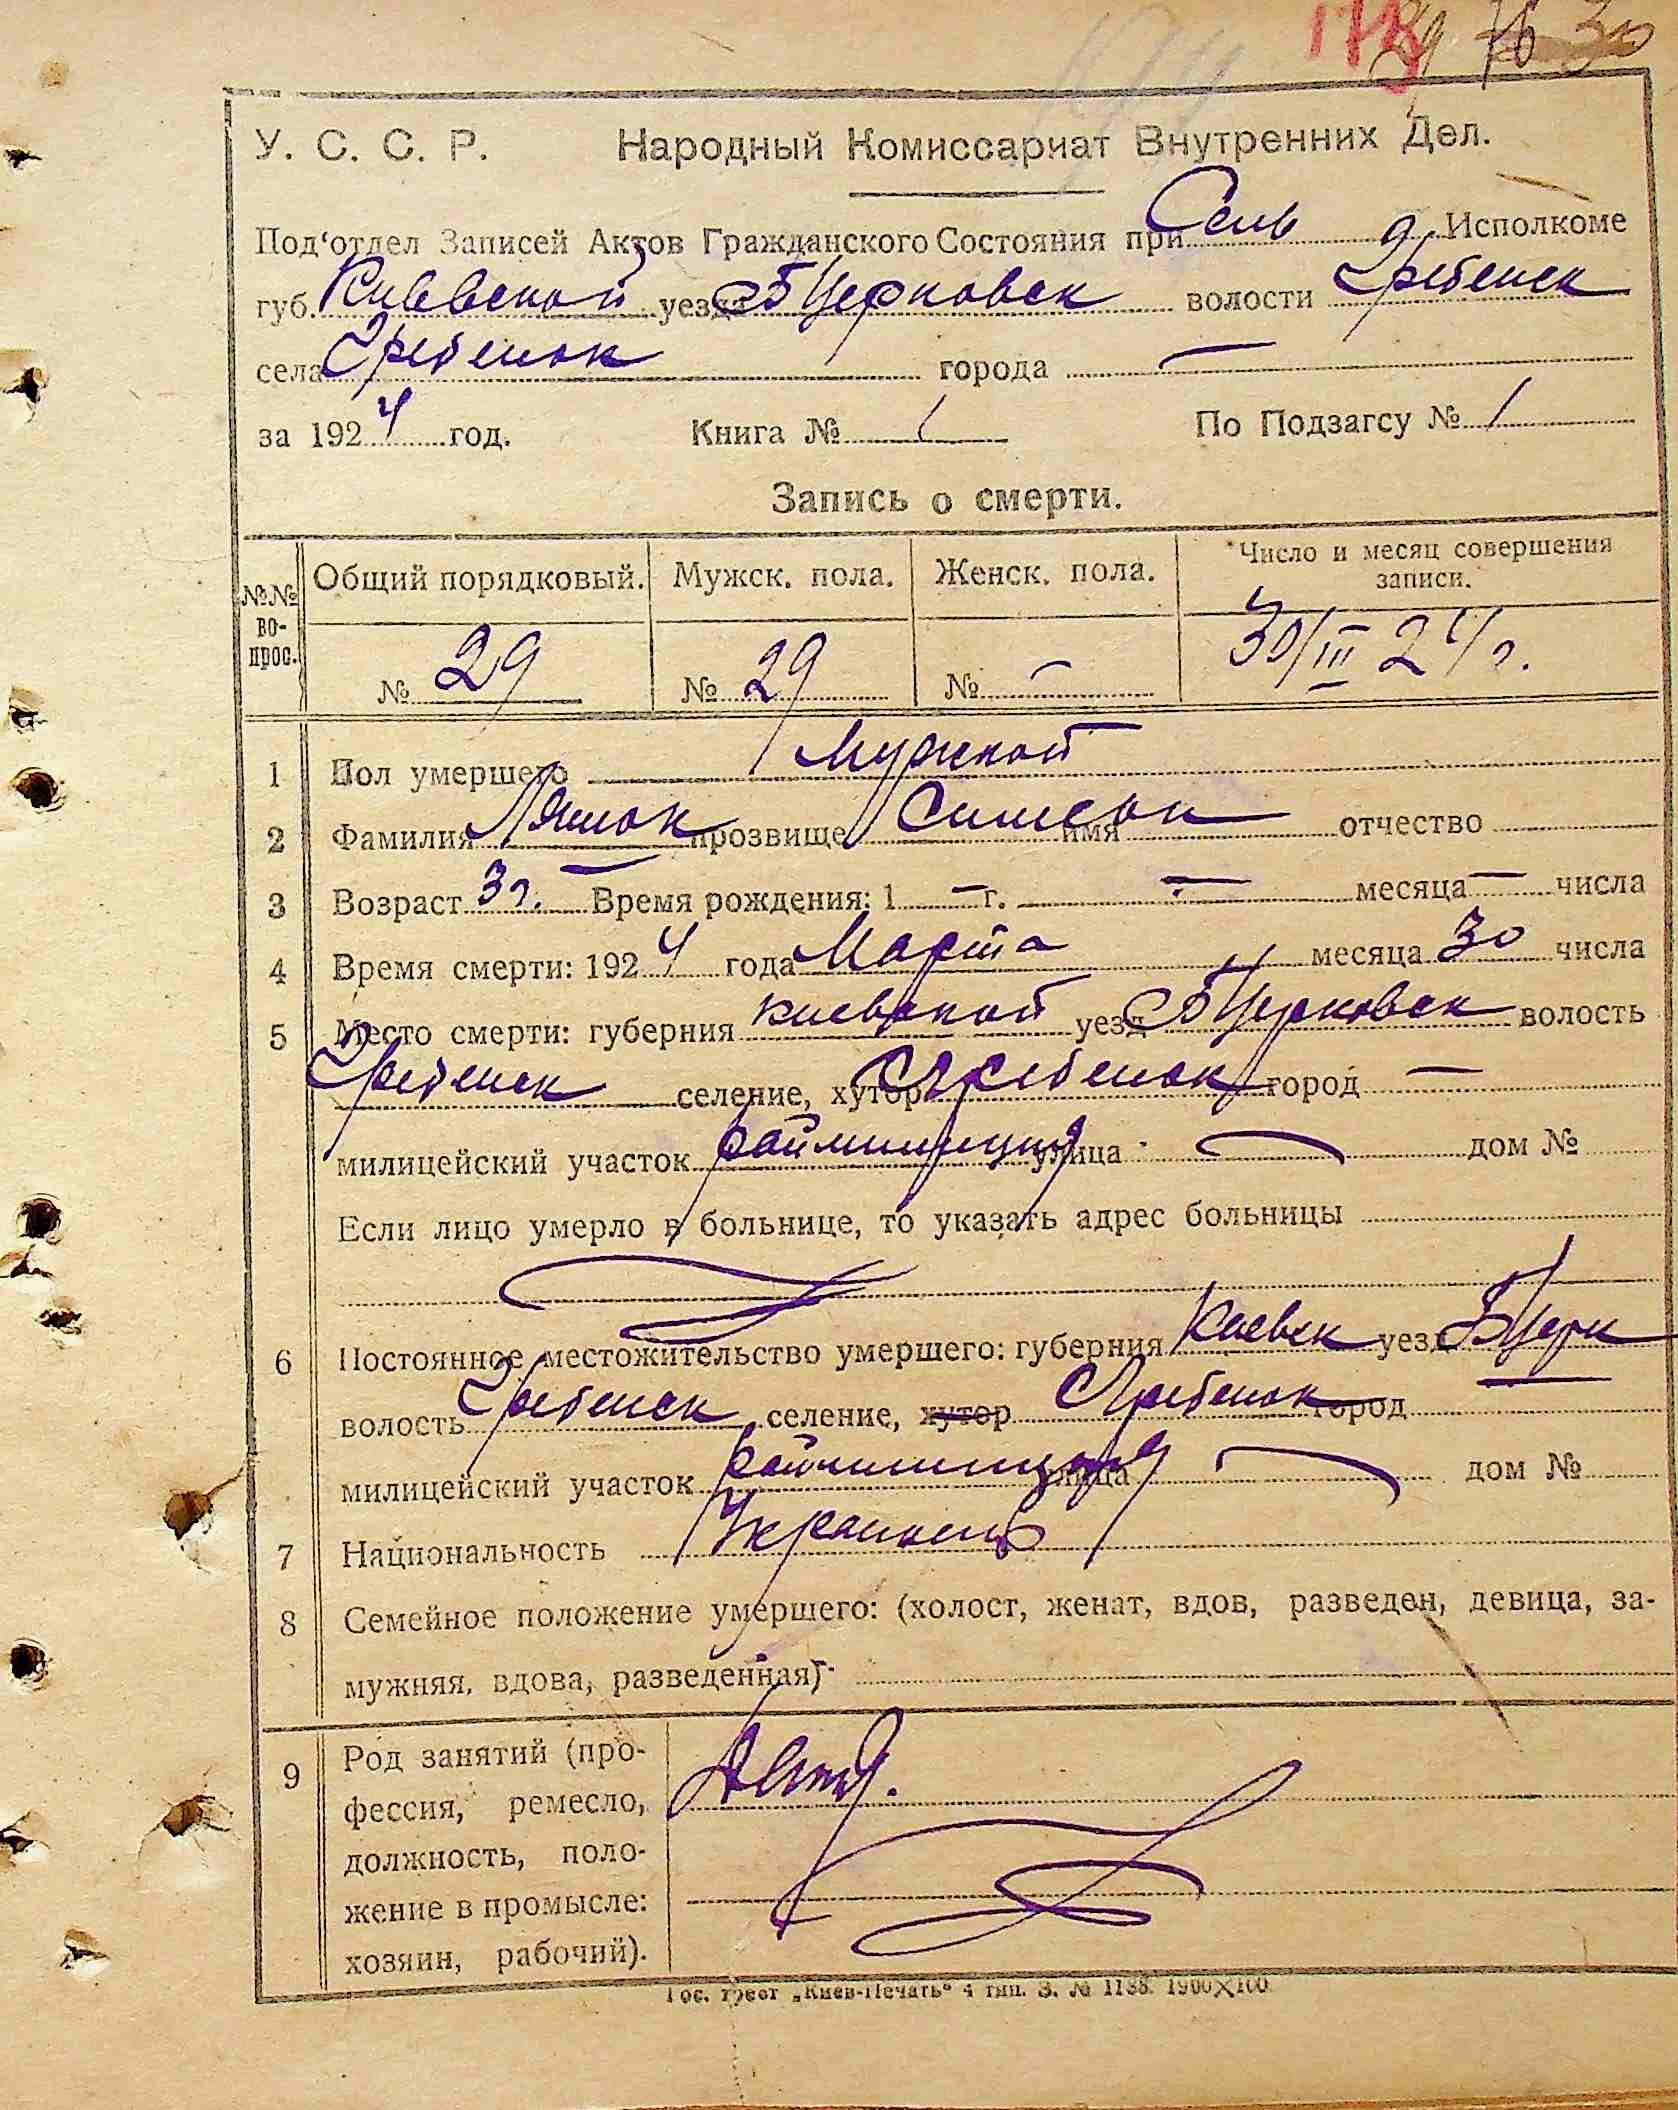 178 29 76 30
У. С. С. Р. Народный Комиссариат Внутренних Дел.
Под‘отдел Записей Актов Гражданского Состояния при Сель Исполкоме
губ. Киевской уезда Б Церковск волости Гребенск
села Гребенок города —
за 1924 год. Книга № 1 По Подзагсу № 1
Запись о смерти.
№№ вопрос. Общий порядковый. Мужск. пола. Женск. пола. Число и месяц совершения записи.
№ 29 № 29 № — 30/III 24 г.
1 Пол умершего Мужской
2 Фамилия прозвище Симеон имя отчество
3 Возраст 3 г. — Время рождения: 1 — г. — месяца — числа
4 Время смерти: 1924 года Марта месяца 30 числа
5 Место смерти: губерния Киевской уезд Б Церковск волость
Гребенск селение, хутор С Гребенок город —
милицейский участок раймилиция улица — дом №
Если лицо умерло в больнице, то указать адрес больницы
6 Постоянное местожительство умершего: губерния Киевск уезд Б Церк
волость Гребенск селение, хутор С Гребенок город
милицейский участок раймилиция улица — дом №
7 Национальность Украинец
8 Семейное положение умершего: (холост, женат, вдов, разведен, девица, за-
мужняя, вдова, разведенная)
9 Род занятий (про-
фессия, ремесло,
должность, поло-
жение в промысле:
хозяин, рабочий).
Гос. трест „Киев-Печать“ 4 тип. З. № 1138. 1900×100